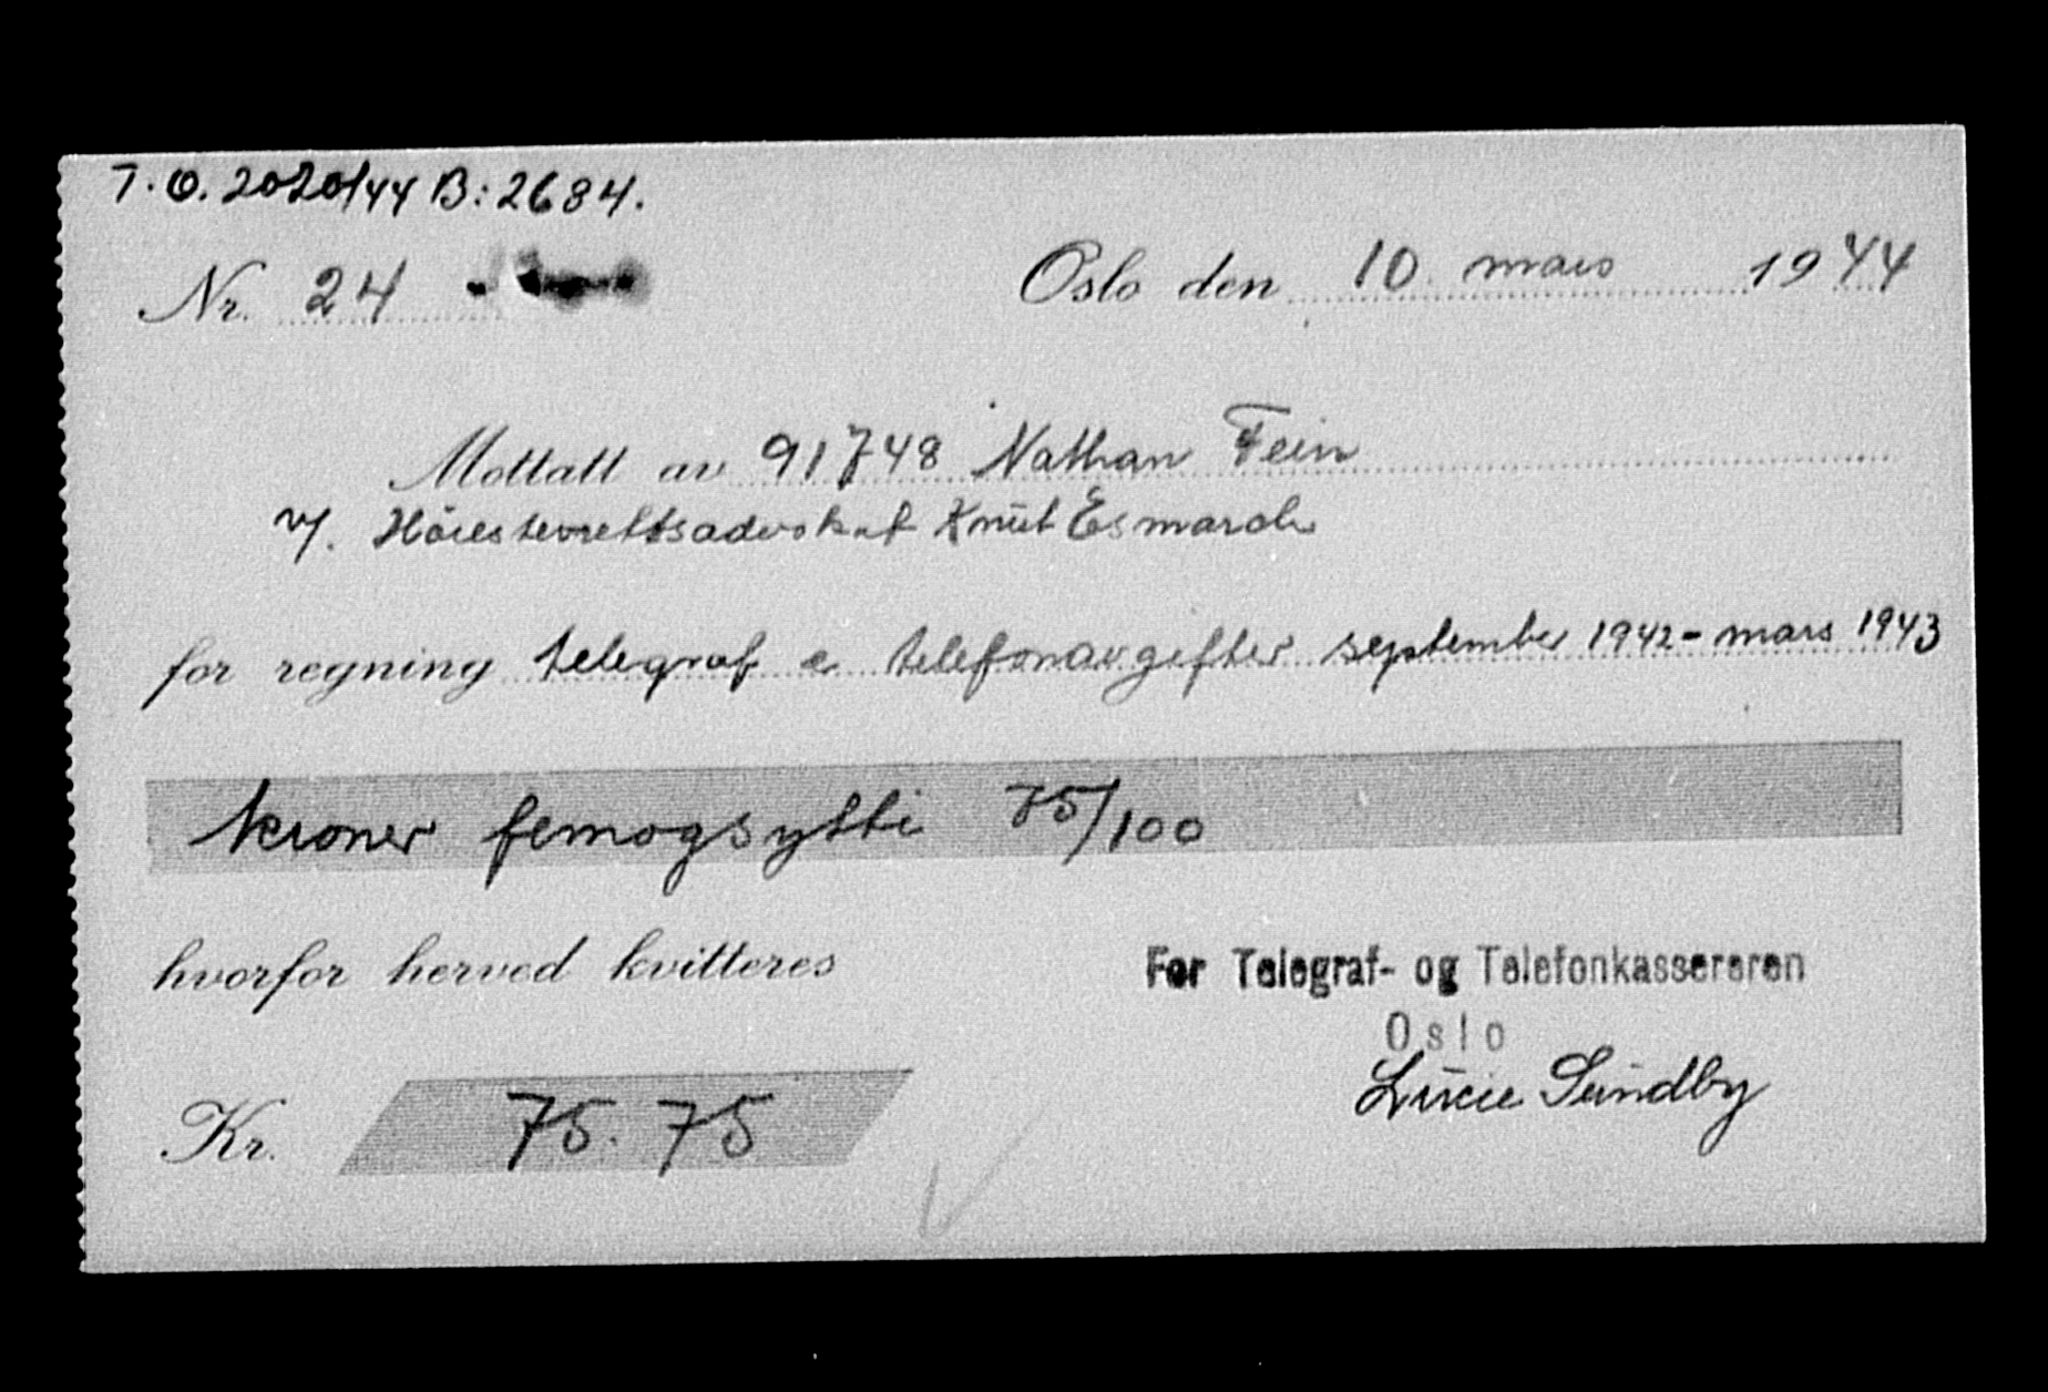 T. O. 2020/44 B: 2684.
Nr. 24
Oslo den 10 mars 1944
Mottatt av 91748 Nathan Fein
v/. Höiesterettsadvokat Knut Esmarch
for regning telegraf & telefonavgifter september 1942 - mars 1943
kroner femogsytti 75/100
hvorfor herved kvitteres
For Telegraf- og Telefonkassereren
Oslo
Lucie Sundby
Kr. 75.75